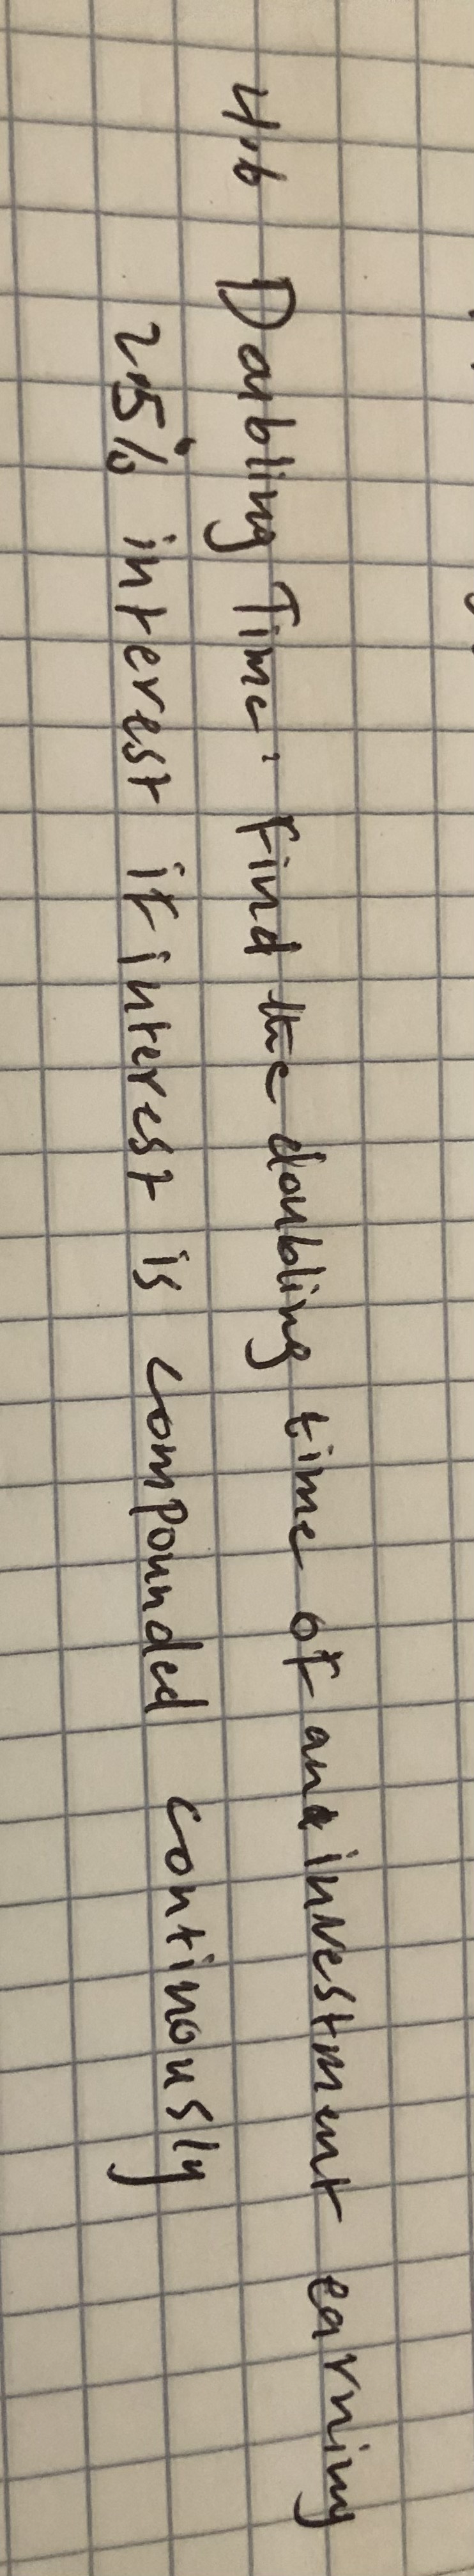 4.6 Doubling Time. Find the doubling time of an investment earning
2.5% interest if interest is compounded continously